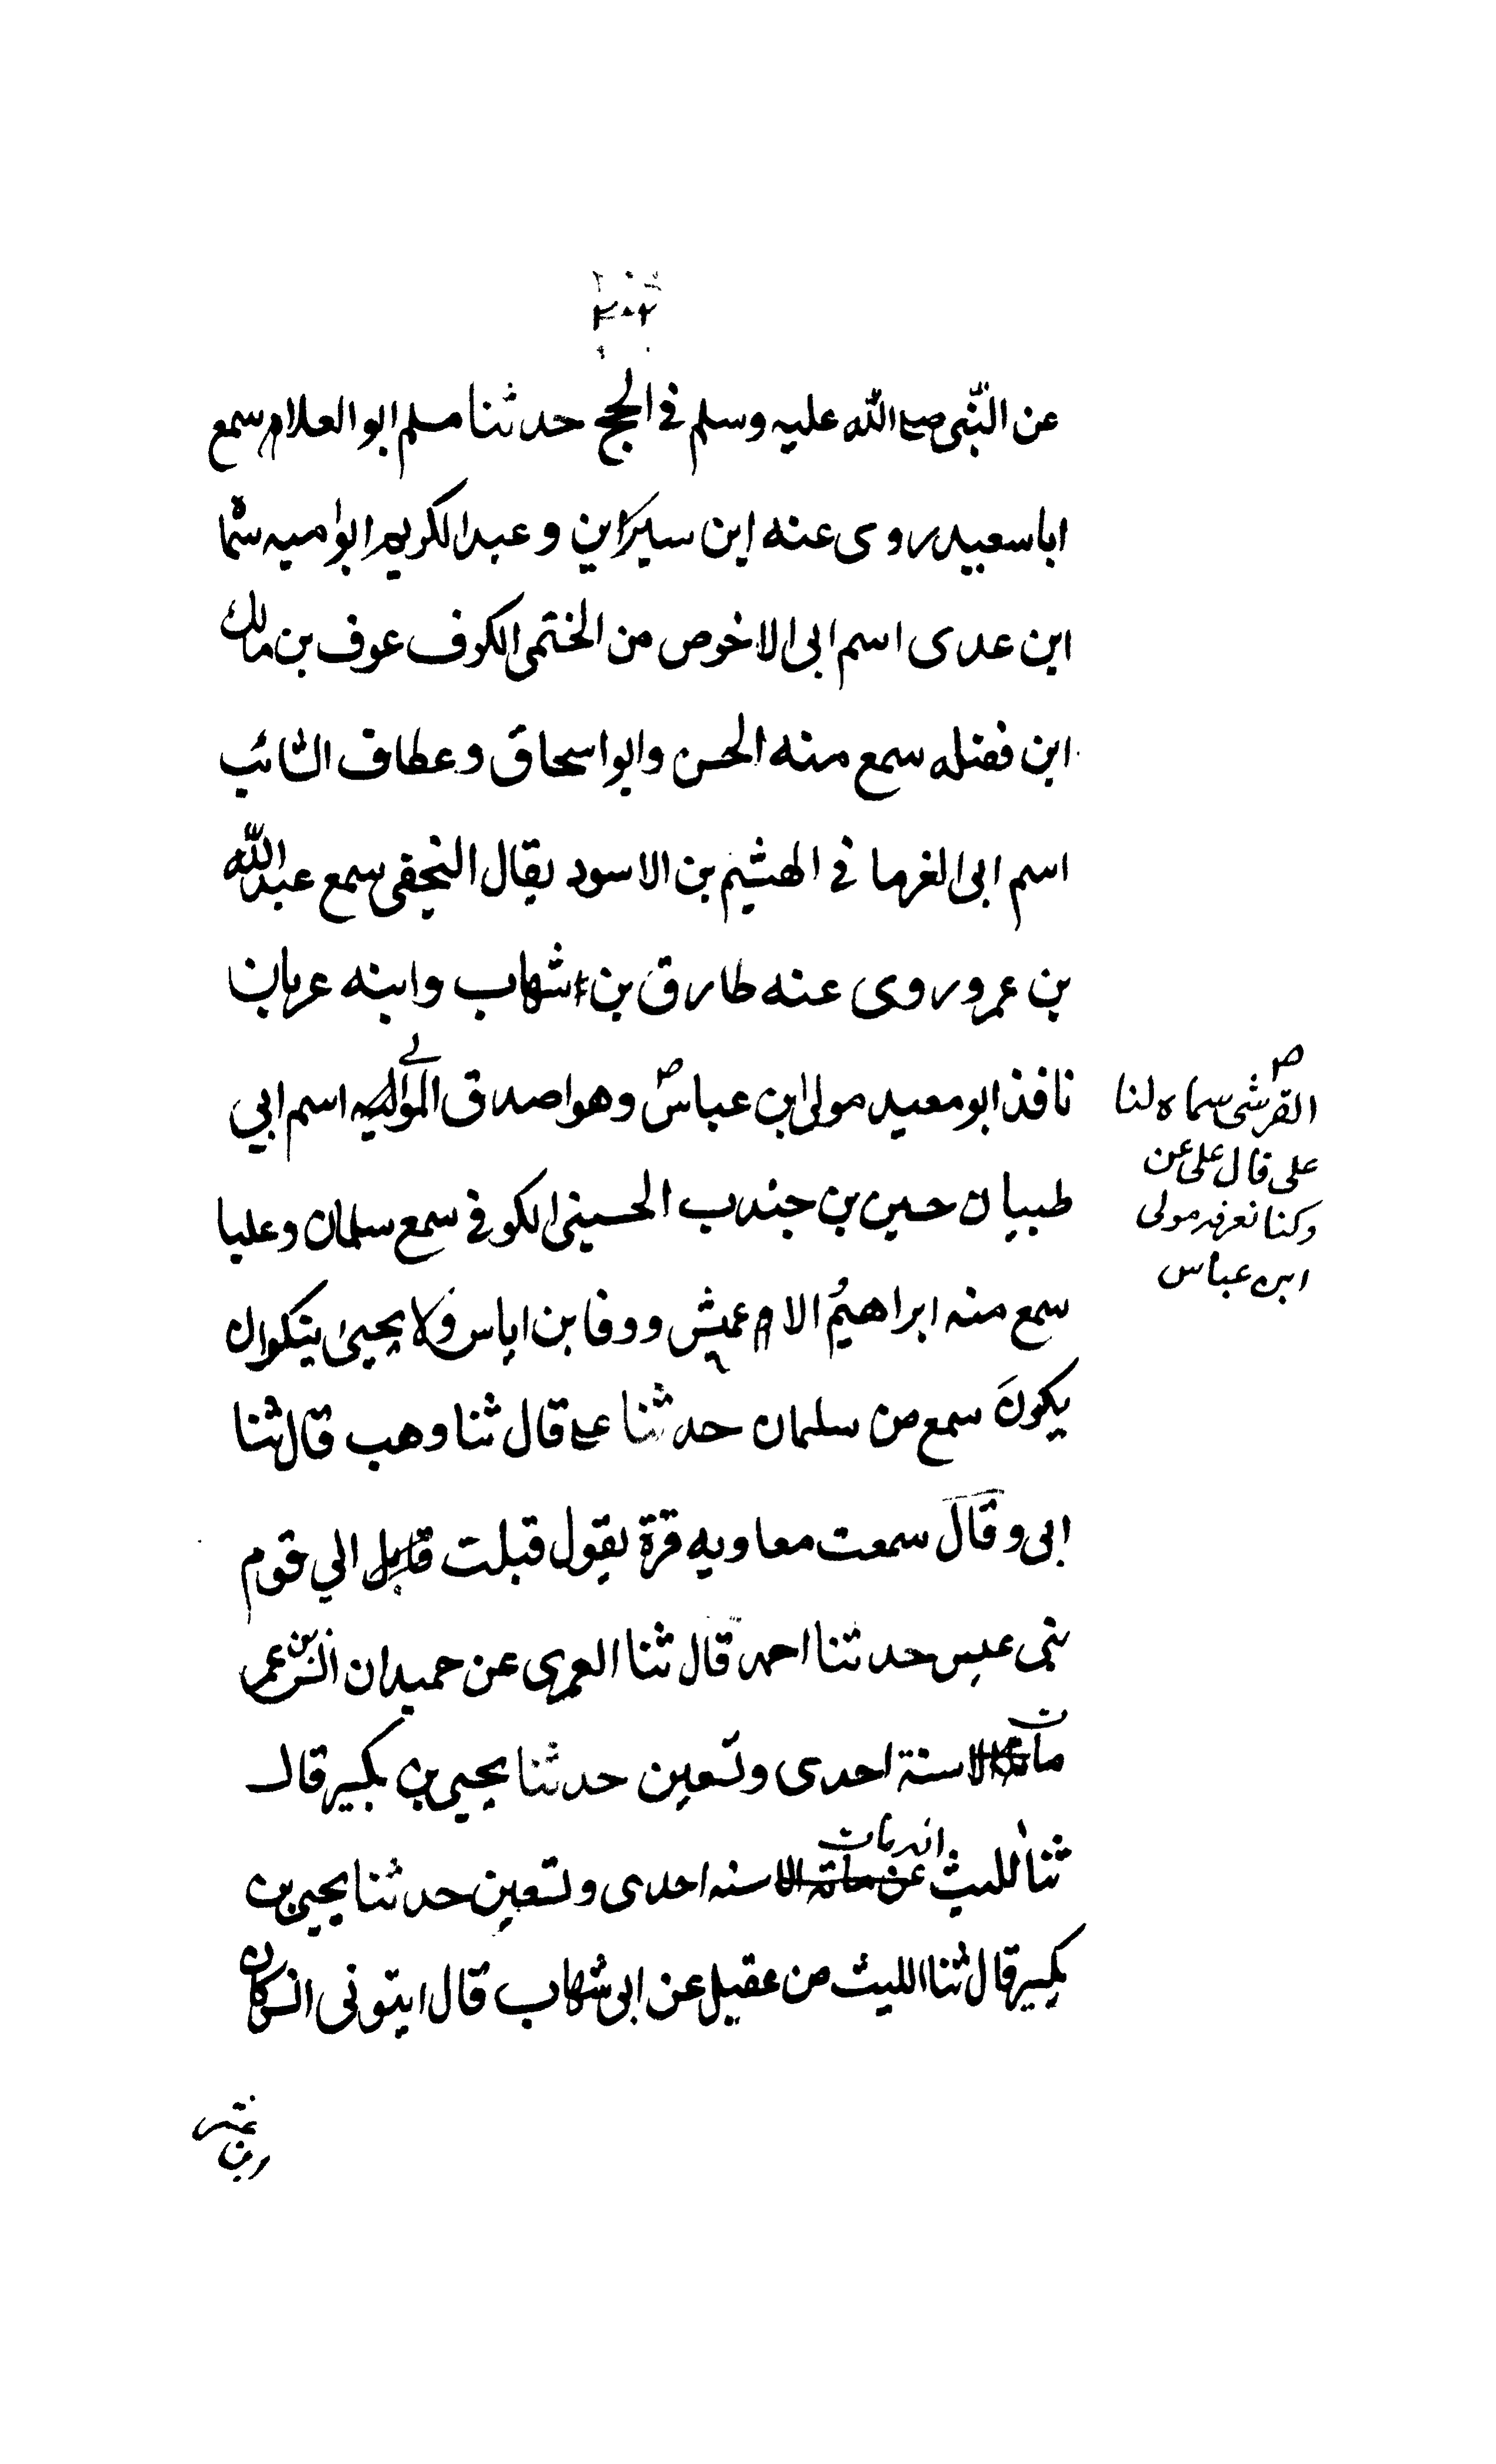 ٢٠٢
عن النّبى صلى الله عليه وسلم فى الحج حدثنا مسلم ابو العلام سمع
اباسعيد روى عنه ابن سيرين وعبدالكريم ابواميه سما
ابن عدى اسم ابى الاخوص من الختمى الكوف عوف بن مالك
ابن فضله سمع منه الحسن وابواسحاق وعطاف الشائب
اسم ابى الغرما فى الهثيم بن الاسود يقال النجفى سمع عبدالله
بن عمرو روى عنه طارق بن شهاب وابنه عريان
نافذ ابو معيد مولى ابن عباس وهو اصدق الموالى اسم ابي
طبيان حسين بن جندب الحسينى الكوفى سمع سلمان وعليا
سمع منه ابراهيم الاعميش ووفا بن اياس ولا يحيى ينكوان
يكون سمع من سلمان حدثنا على قال ثنا وهب قال ثنا
ابى وقال سمعت معاويه قرة يقول قبلت قابل الي قوم
بنى عبس حدثنا احمد قال ثنا العمرى عن حميد ان انس بن عمر
مات سنة احدى وتسعين حدثنا يحيى بن بكير قال
ثنا الليث انه مات سنه احدى وتسعين حدثنا يحيى بن
بكير قال ثنا الليث من عقيل عن ابى شهاب قال ايتونى انس كان
القرشى سماه لنا
على قال على عن
وكنا نعرفه مولى
ابن عباس